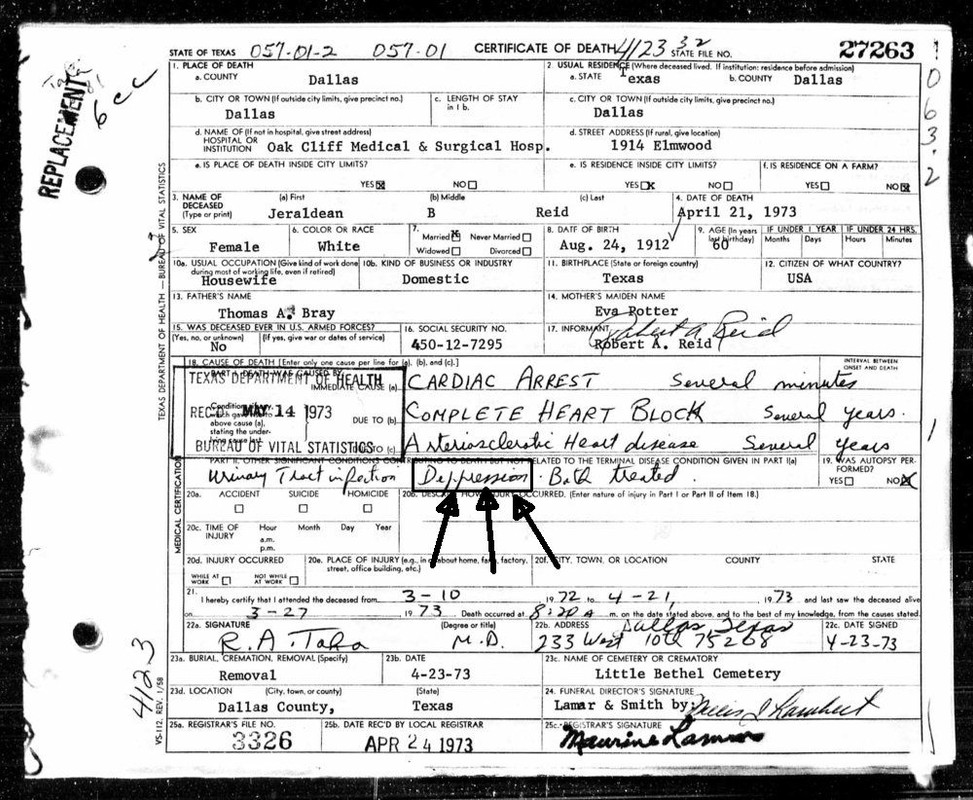 REPLACEMENT
6 cc
STATE OF TEXAS 057-01-2 057-01 CERTIFICATE OF DEATH 4/23 32 STATE FILE NO. 27263
1. PLACE OF DEATH
a. COUNTY Dallas
2. USUAL RESIDENCE (Where deceased lived. If institution: residence before admission)
a. STATE Texas b. COUNTY Dallas
b. CITY OR TOWN (If outside city limits, give precinct no.) Dallas
c. LENGTH OF STAY in 1 b.
c. CITY OR TOWN (If outside city limits, give precinct no.) Dallas
d. NAME OF (If not in hospital, give street address) HOSPITAL OR INSTITUTION Oak Cliff Medical & Surgical Hosp.
d. STREET ADDRESS (If rural, give location) 1914 Elmwood
e. IS PLACE OF DEATH INSIDE CITY LIMITS? YES NO
e. IS RESIDENCE INSIDE CITY LIMITS? YES NO
f. IS RESIDENCE ON A FARM? YES NO
3. NAME OF DECEASED (Type or print) (a) First Jeraldean (b) Middle B (c) Last Reid
4. DATE OF DEATH April 21, 1973
5. SEX Female
6. COLOR OR RACE White
7. Married Never Married Widowed Divorced
8. DATE OF BIRTH Aug. 24, 1912
9. AGE (In years last birthday) 60
IF UNDER 1 YEAR Months Days
IF UNDER 24 HRS. Hours Minutes
10a. USUAL OCCUPATION (Give kind of work done during most of working life, even if retired) Housewife
10b. KIND OF BUSINESS OR INDUSTRY Domestic
11. BIRTHPLACE (State or foreign country) Texas
12. CITIZEN OF WHAT COUNTRY? USA
13. FATHER'S NAME Thomas A. Bray
14. MOTHER'S MAIDEN NAME Eva Potter
15. WAS DECEASED EVER IN U.S. ARMED FORCES? (Yes, no, or unknown) (If yes, give war or dates of service) No
16. SOCIAL SECURITY NO. 450-12-7295
17. INFORMANT Robert A Reid
Robert A. Reid
18. CAUSE OF DEATH [Enter only one cause per line for (a), (b), and (c).]
INTERVAL BETWEEN ONSET AND DEATH
PART I. DEATH WAS CAUSED BY:
IMMEDIATE CAUSE (a) CARDIAC ARREST Several minutes
TEXAS DEPARTMENT OF HEALTH
REC'D MAY 14 1973
BUREAU OF VITAL STATISTICS
Conditions, if any, which gave rise to above cause (a), stating the under-lying cause last.
DUE TO (b) COMPLETE HEART BLOCK Several years.
DUE TO (c) Arteriosclerotic Heart disease Several years
PART II. OTHER SIGNIFICANT CONDITIONS CONTRIBUTING TO DEATH BUT NOT RELATED TO THE TERMINAL DISEASE CONDITION GIVEN IN PART I(a)
Urinary Tract infection Deppression. Both treated.
19. WAS AUTOPSY PERFORMED? YES NO
20a. ACCIDENT SUICIDE HOMICIDE
20b. DESCRIBE HOW INJURY OCCURRED. (Enter nature of injury in Part I or Part II of Item 18.)
20c. TIME OF INJURY Hour Month Day Year a.m. p.m.
20d. INJURY OCCURRED WHILE AT WORK NOT WHILE AT WORK
20e. PLACE OF INJURY (e.g., in or about home, farm, factory, street, office building, etc.)
20f. CITY, TOWN, OR LOCATION COUNTY STATE
21. I hereby certify that I attended the deceased from 3-10 1972 to 4-21, 1973 and last saw the deceased alive
on 3-27 1973 Death occurred at 8:20 a m. on the date stated above, and to the best of my knowledge, from the causes stated.
22a. SIGNATURE R. A. Taha (Degree or title) M.D.
22b. ADDRESS Dallas Texas
233 West 10th 75208
22c. DATE SIGNED 4-23-73
23a. BURIAL, CREMATION, REMOVAL (Specify) Removal
23b. DATE 4-23-73
23c. NAME OF CEMETERY OR CREMATORY Little Bethel Cemetery
23d. LOCATION (City, town, or county) (State) Dallas County, Texas
24. FUNERAL DIRECTOR'S SIGNATURE Lamar & Smith by:
25a. REGISTRAR'S FILE NO. 3326
25b. DATE REC'D BY LOCAL REGISTRAR APR 24 1973
25c. REGISTRAR'S SIGNATURE
TEXAS DEPARTMENT OF HEALTH—BUREAU OF VITAL STATISTICS
MEDICAL CERTIFICATION
VS-112, REV. 1/58
4123
063.2